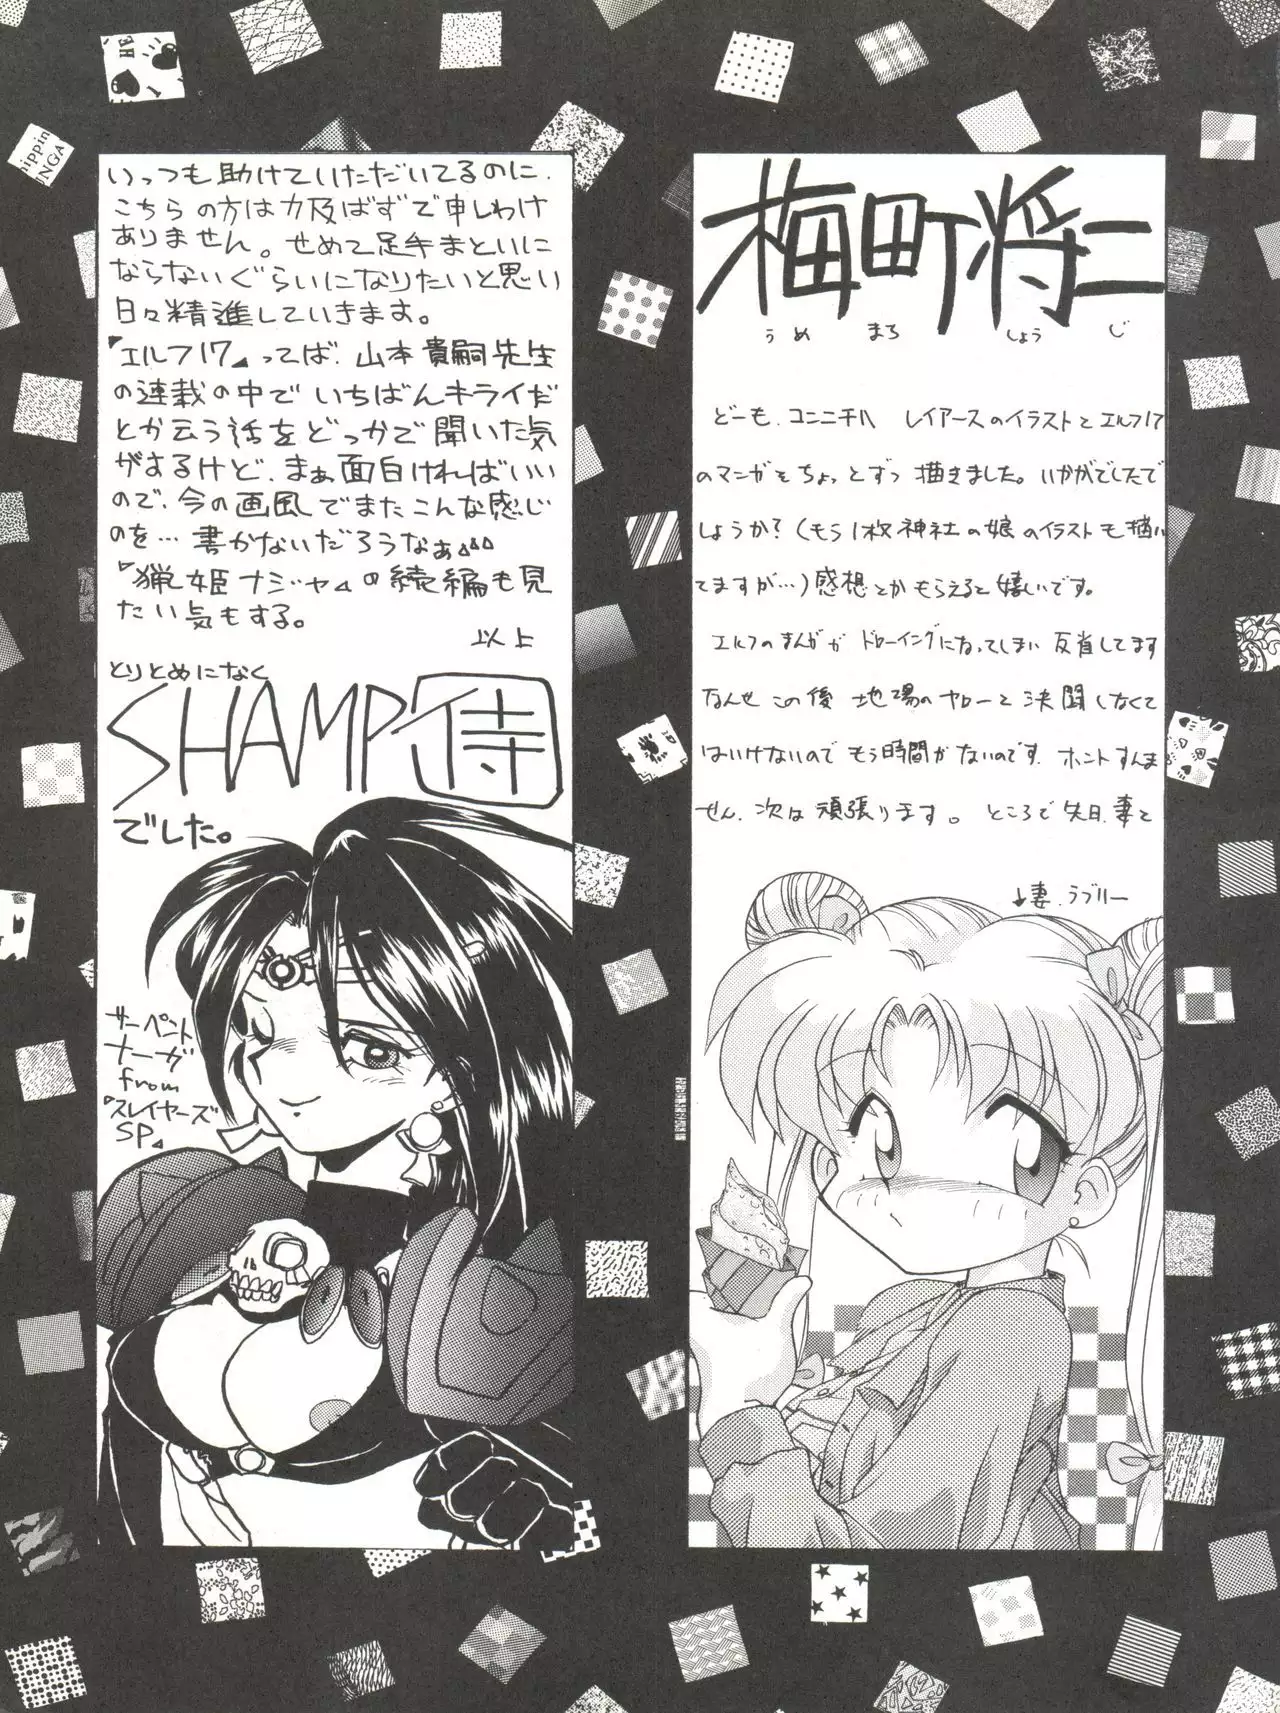 いっつも助けていただいてるのに、
こちらの方は力及ばずで申しわけ
ありません。せめて足手まといに
ならないぐらいになりたいと思い
日々精進していきます。
『エルフ17』ってば、山本貴嗣先生
の連載の中でいちばんキライだ
とか云う話をどっかで聞いた気
がするけど、まぁ面白ければいい
ので、今の画風でまたこんな感じ
のを…書かないだろうなぁ
『猟姫ナジャ』の続編も見
たい気もする。
以上
とりとめになく
SHAMP侍
でした。
サーペント
ナーガ
from
『スレイヤーズ
SP』
梅町将二
うめ まち しょう じ
どーも、コンニチハ レイアースのイラストとエルフ17
のマンガをちょっとずつ描きました。いかがでしたで
しょうか?(もう1枚神社の娘のイラストも描い
てますが…)感想とかもらえると嬉しいです。
エルフのまんがが ドローイングになってしまい 反省してます
なんせ この後 地場のヤローと 決闘しなくて
はいけないので もう時間がないのです。ホントすんま
せん、次は頑張ります。 ところで 先日、妻と
↓妻、ラブリー
nippin
INGA